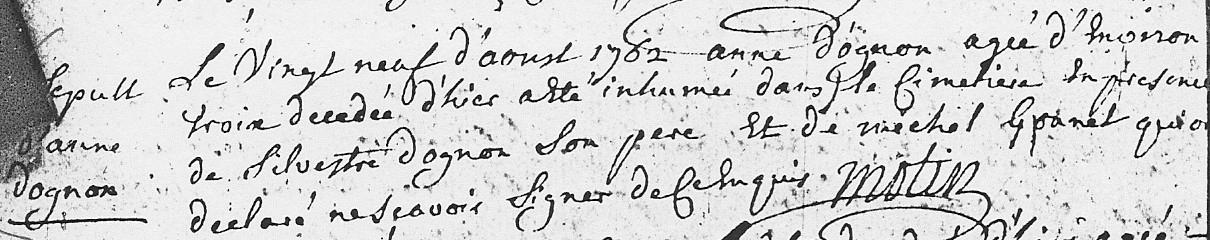 Sepult
d'anne
Dognon
Le Vingt neuf d'aoust 1762 anne Dognon agée d'Environ
trois decedée d'hier a Eté inhumée dans le Cimetiere En presence
de Silvestre Dognon Son pere Et de michel qui on
declaré ne Scavoir Signer de Ce Enquis motin